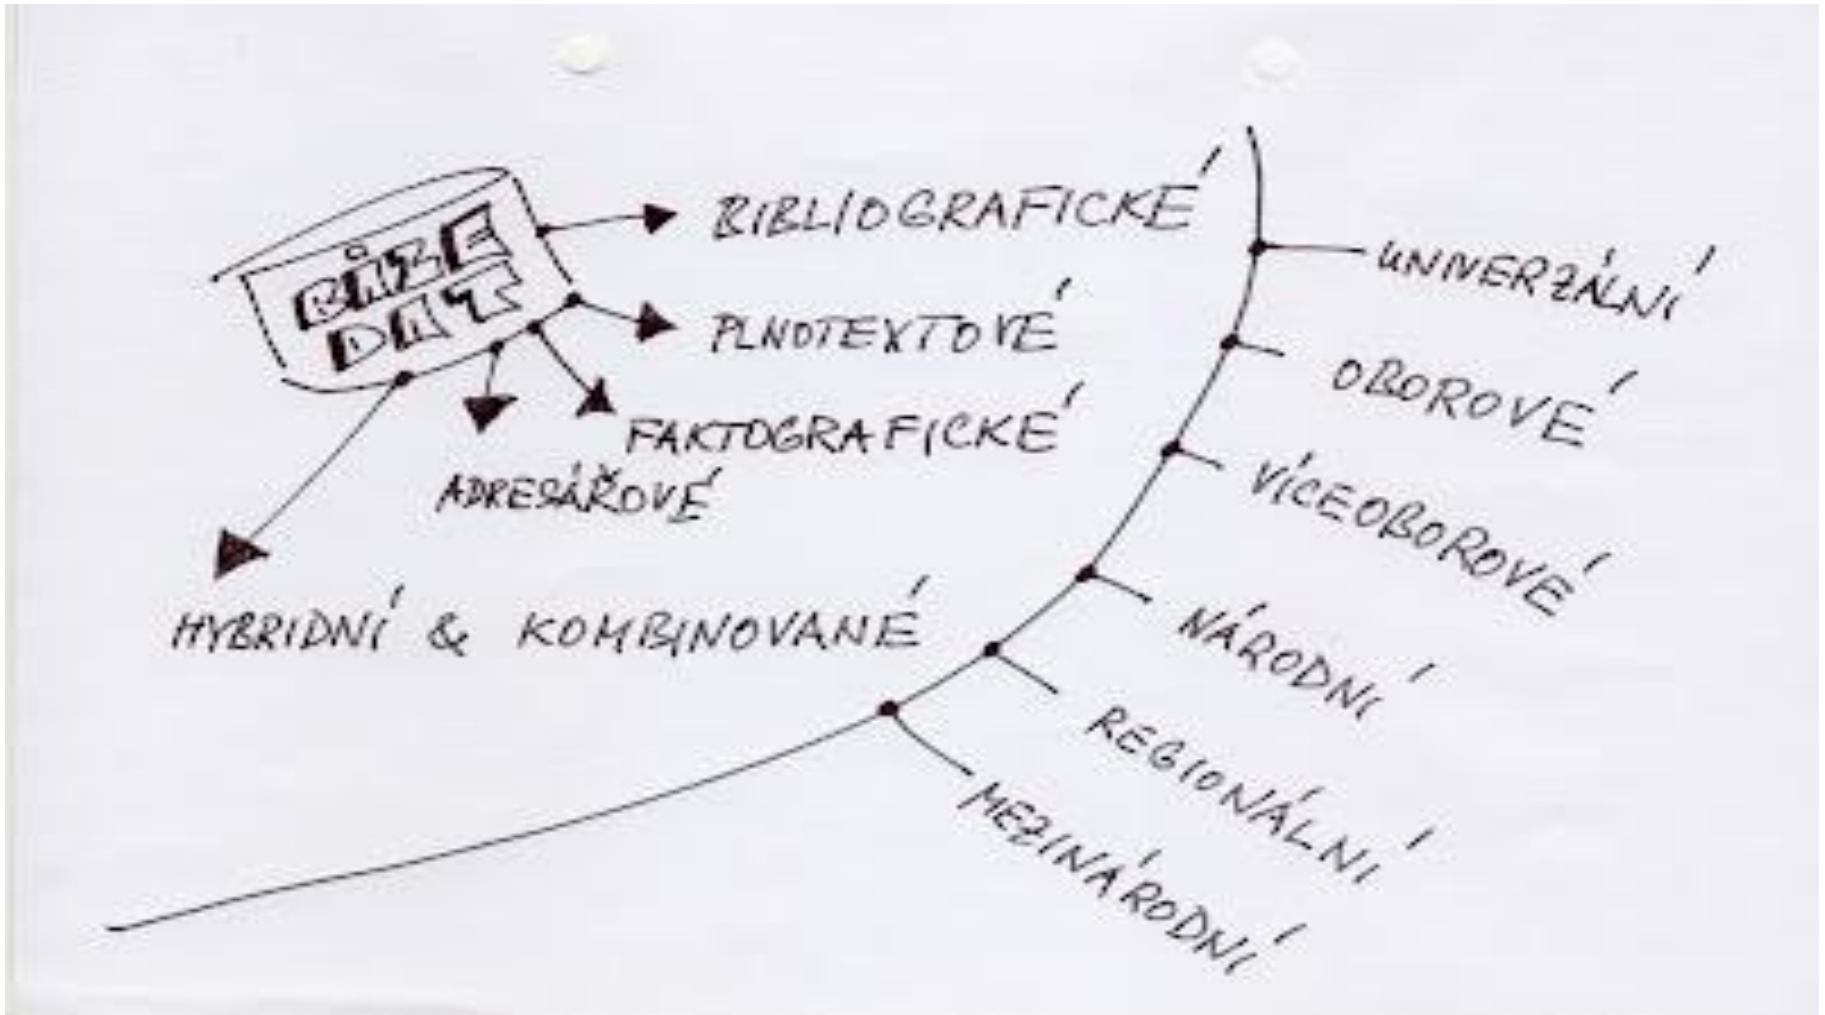 BÁZE
DAT
BIBLIOGRAFICKÉ
PLNOTEXTOVÉ
FAKTOGRAFICKÉ
ADRESÁŘOVÉ
HYBRIDNÍ & KOMBINOVANÉ
UNIVERZÁLNÍ
OBOROVÉ
VÍCEOBOROVÉ
NÁRODNÍ
REGIONÁLNÍ
MEZINÁRODNÍ